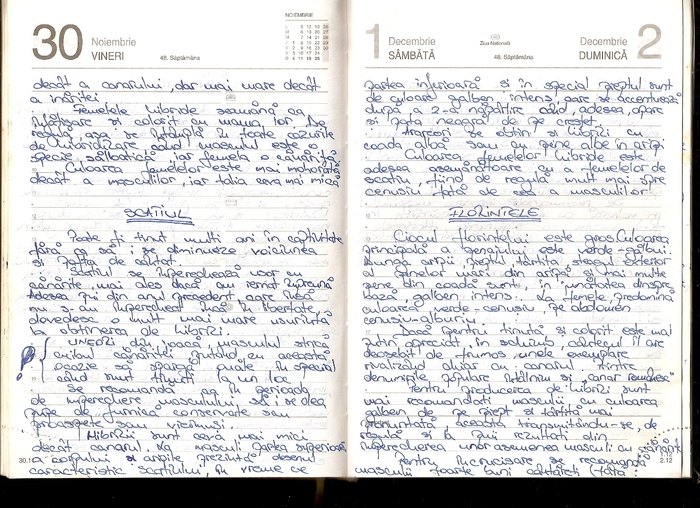 30 Noiembrie
VINERI
48. Săptămâna
NOIEMBRIE
decât a canarului, dar mai mare decât
a înăriței
Femelele hibride seamănă ca
înfățișare și colorit cu mama lor. De
regulă așa se întâmplă în toate cazurile
de hibridizare când masculul este o
specie sălbatică, iar femela o cănăriță
Culoarea femelelor este mai mohorâtă
decât a masculilor, iar talia ceva mai mică
SCATIUL
Poate fi ținut mulți ani în captivitate
fără ca să i se diminueze vioiciunea
și pofta de cântat.
Scatiul se împerechează ușor cu
cănărițe, mai ales dacă au iernat împreună
Adesea pui din anul precedent, care încă
nu s-au împerecheat încă în libertate,
dovedesc o mult mai mare ușurință
la obținerea de hibrizi.
UNEORI din joacă masculul strică
cuibul cănăriței ajutând cu această
ocazie să spargă ouăle în special
când sunt ținuți la un loc
Se recomandă ca în perioada
de împerechere masculului să i se dea
pupe de furnică conservate sau
proaspete sau viermuși.
Hibrizii sunt ceva mai mici
decât canarul. La masculi partea superioară
a corpului și aripile prezintă desenul
caracteristic scatiului, în vreme ce
30.11
1 Decembrie
SÂMBĂTĂ
Ziua Națională
48. Săptămâna
Decembrie 2
DUMINICĂ
partea inferioară și în special pieptul sunt
de culoare galben intens, care se accentuează
după a 2-a năpârlire când adesea, apare
și pata neagră de pe creștet.
Arareori se obțin și hibrizi cu
coada albă sau cu pene albe în aripi
Culoarea femelelor hibride este
adesea asemănătoare cu a femelelor de
scatiu, fiind de regulă mult mai spre
cenușiu față de cea a masculilor.
FLORINTELE
Ciocul florintelui este gros. Culoarea
principală a penajului este verde-gălbui.
Dunga aripii pieptul târtița, steagul exterior
al penelor mari din aripă și mai multe
pene din coadă sunt, în jumătatea dinspre
bază, galben intens. La femele predomină
culoarea verde-cenușiu, pe abdomen
cenușiu-albarui.
Dacă pentru ținută și colorit este mai
puțin apreciat, în schimb, cântecul îl are
deosebit de frumos, unele exemplare
rivalizând chiar cu canarul. Printre
denumirile populare întâlnim și "canar românesc"
Pentru producerea de hibrizi sunt
mai recomandați masculii cu culoarea
galben de pe piept și târtiță mai
pronunțată, aceasta transmițându-se, de
regulă și la puii rezultați din
împerecherea unor asemenea masculi cu cănărițe
Pentru încrucișare se recomandă
masculii foarte buni cântăreți (fata
2.12